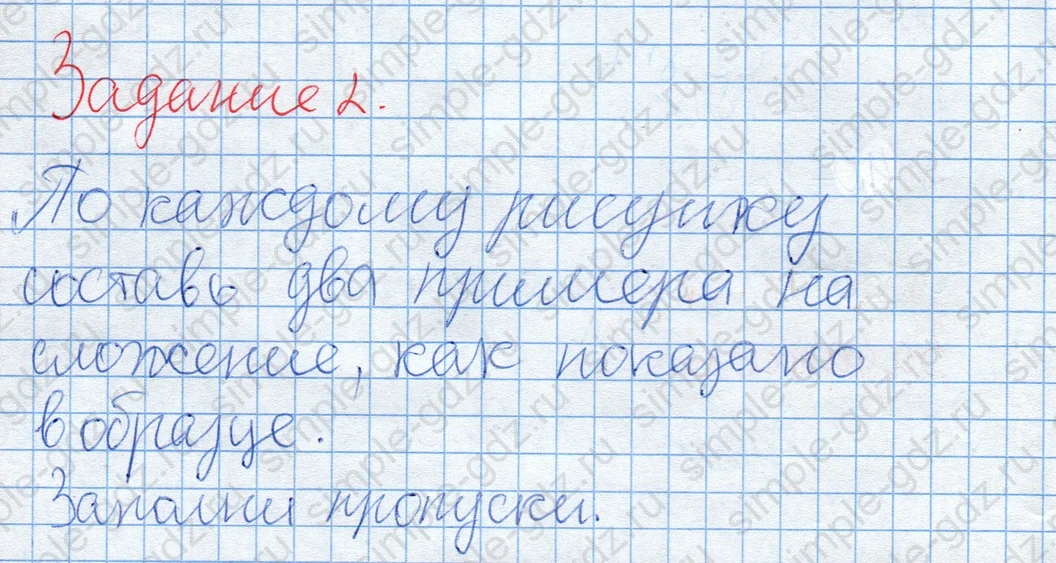 Задание 2.
По каждому рисунку
составь два примера на
сложение, как показано
в образце.
Заполни пропуски.